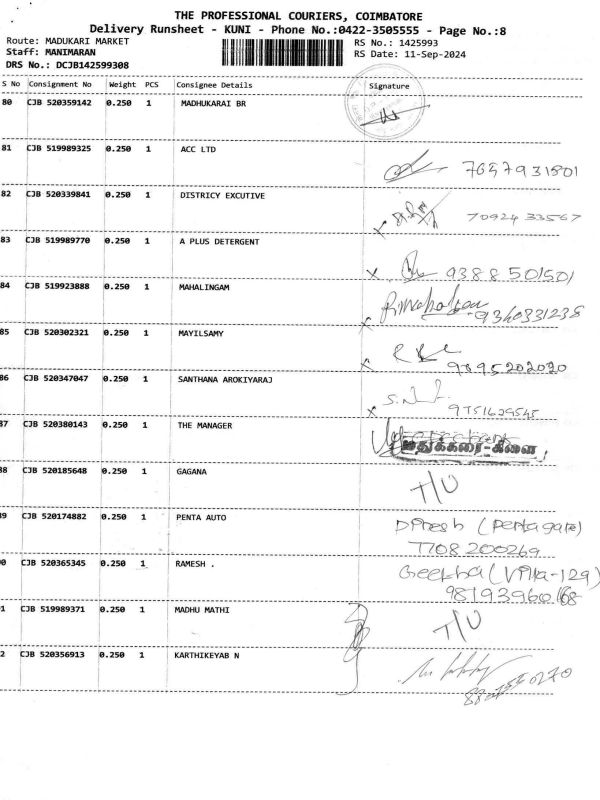 THE PROFESSIONAL COURIERS, COIMBATORE
Delivery Runsheet - KUNI - Phone No.:0422-3505555 - Page No.:8
Route: MADUKARI MARKET RS No.: 1425993
Staff: MANIMARAN RS Date: 11-Sep-2024
DRS No.: DCJB142599308
S No Consignment No Weight PCS Consignee Details Signature
80 CJB 520359142 0.250 1 MADHUKARAI BR
81 CJB 519989325 0.250 1 ACC LTD
7657931801
82 CJB 520339841 0.250 1 DISTRICY EXCUTIVE
70924 33567
83 CJB 519989770 0.250 1 A PLUS DETERGENT
x 9388 501501
84 CJB 519923888 0.250 1 MAHALINGAM
9360331238
85 CJB 520302321 0.250 1 MAYILSAMY
9895202020
86 CJB 520347047 0.250 1 SANTHANA AROKIYARAJ
9751629545
87 CJB 520380143 0.250 1 THE MANAGER
மதுக்கரை-கிளை
88 CJB 520185648 0.250 1 GAGANA
T/U
89 CJB 520174882 0.250 1 PENTA AUTO
Dinesh (Pentagare)
7708 200269
90 CJB 520365345 0.250 1 RAMESH .
Geetha (Villa-129)
91 CJB 519989371 0.250 1 MADHU MATHI
T/U
92 CJB 520356913 0.250 1 KARTHIKEYAB N